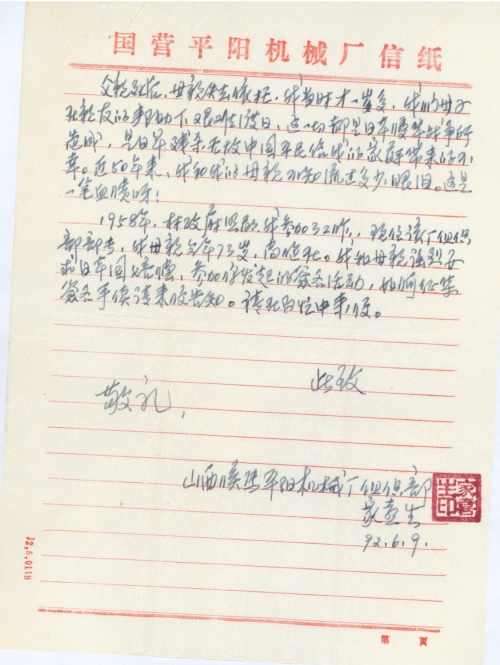 国营平阳机械厂信纸
父亲死后，母亲失去依托，我当时才一岁多，我们母子
在亲友的帮助下艰难度日，这一切都是日军侵华战争所
造成，是日军残杀无故中国平民给我的家庭带来的不
幸。近50年来，我和我的母亲不知流过多少眼泪。这是
一笔血债呀！
1958年，村政府照顾我参加工作，现任该厂组织
部部长，我母亲今年73岁，尚健在。我和母亲强烈要
求日本国赔偿，参加你发起的签名活动，如何征集
签名手续请来信告知。请在百忙中来信。
此致
敬礼，
山西侯马平阳机械厂组织部
家喜生
92.6.9.
家喜
生印
J2.5.0119
第 页